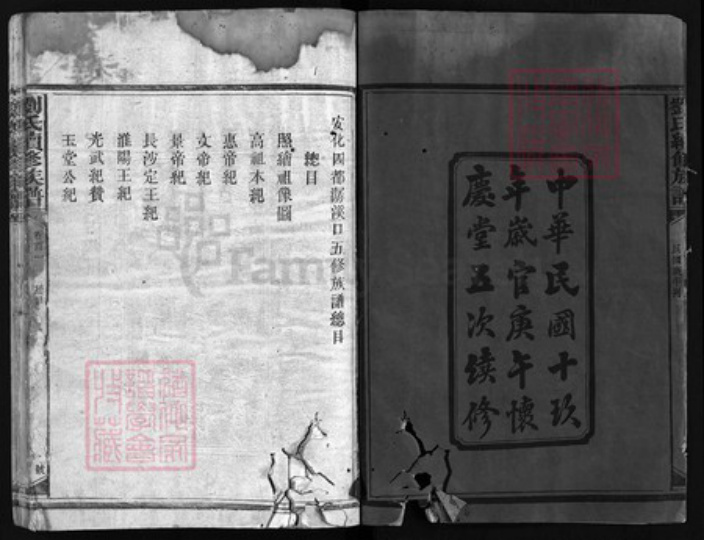 中華民國十玖
年歲官庚午懷
慶堂五次續修
劉氏續修族譜
安化四都蒻溪口五修族譜總目
總目
照繪祖像圖
高祖本紀
惠帝紀
文帝紀
景帝紀
長沙定王紀
淮陽王紀
光武紀贊
玉堂公紀
劉氏續修族譜